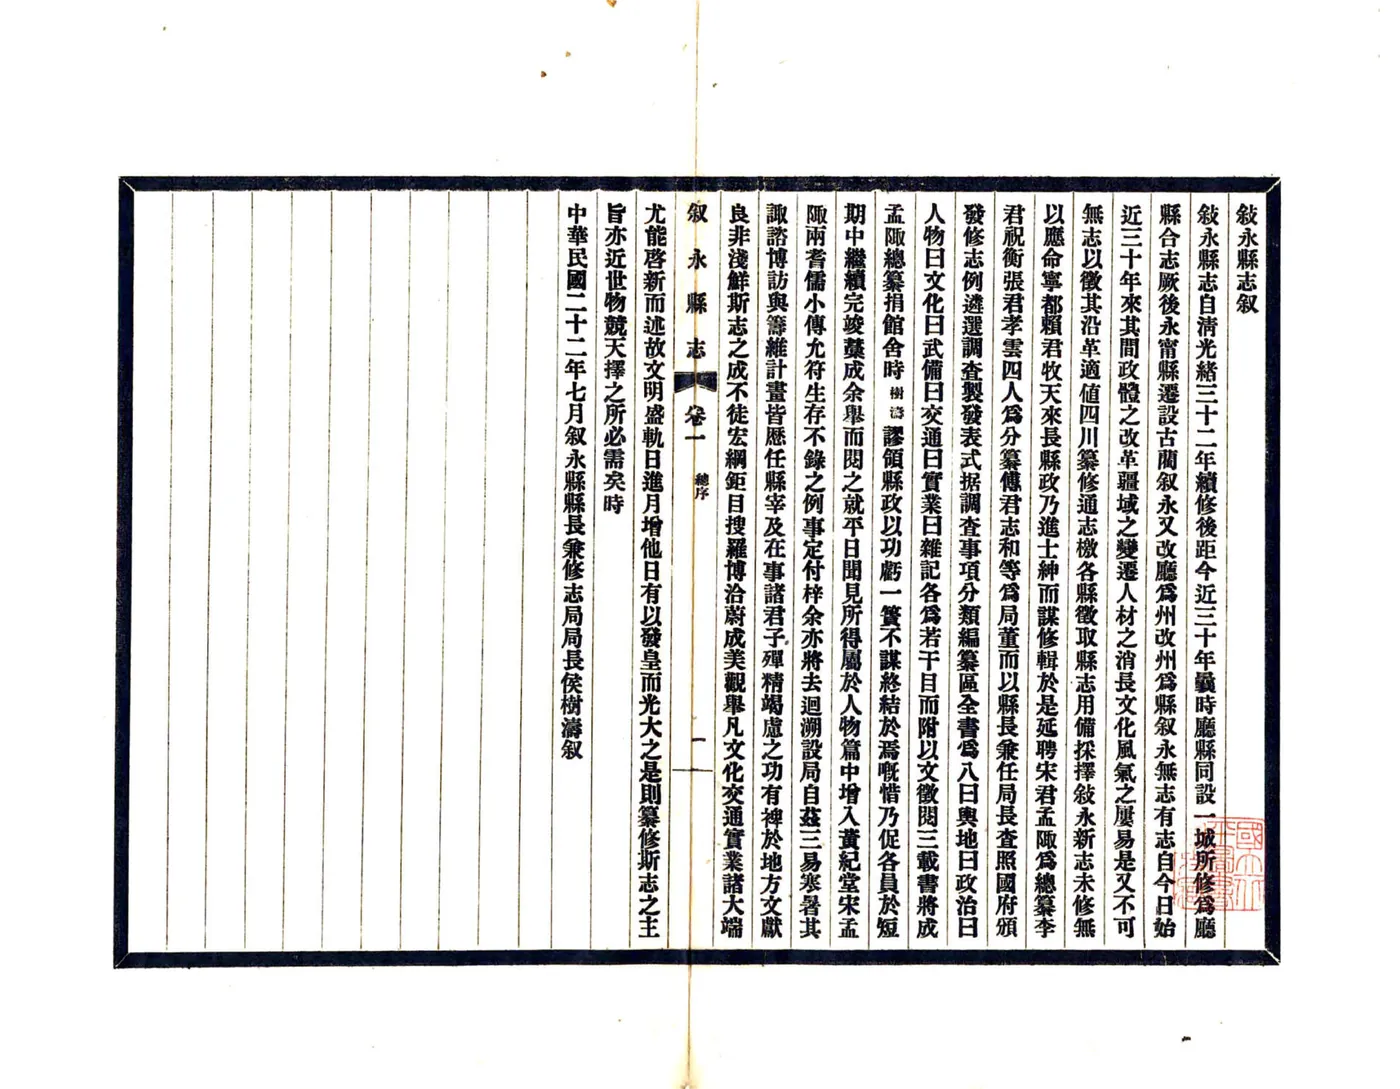 敍永縣志叙
敍永縣志自清光緒三十二年續修後距今近三十年曩時廳縣同設一城所修爲廳
縣合志厥後永甯縣遷設古藺叙永又改廳爲州改州爲縣叙永無志有志自今日始
近三十年來其間政體之改革疆域之變遷人材之消長文化風氣之屢易是又不可
無志以徵其沿革適值四川纂修通志檄各縣徵取縣志用備採擇敍永新志未修無
以應命寧都賴君牧天來長縣政乃進士紳而謀修輯於是延聘宋君孟陬爲總纂李
君祝衡張君孝雲四人爲分纂傅君志和等爲局董而以縣長兼任局長查照國府頒
發修志例遴選調查製發表式据調查事項分類編纂區全書爲八曰輿地曰政治曰
人物曰文化曰武備曰交通曰實業曰雜記各爲若干目而附以文徵閱三載書將成
孟陬總纂捐館舍時樹濤謬領縣政以功虧一簣不謀終結於焉嘅惜乃促各員於短
期中繼續完竣藁成余舉而閱之就平日聞見所得屬於人物篇中增入黃紀堂宋孟
陬兩耆儒小傳允符生存不錄之例事定付梓余亦將去迴溯設局自茲三易寒暑其
諏諮博訪與籌維計畫皆歷任縣宰及在事諸君子殫精竭慮之功有裨於地方文獻
良非淺鮮斯志之成不徒宏綱鉅目搜羅博洽蔚成美觀舉凡文化交通實業諸大端
叙永縣志 卷一 總序 一
尤能啓新而述故文明盛軌日進月增他日有以發皇而光大之是則纂修斯志之主
旨亦近世物競天擇之所必需矣時
中華民國二十二年七月叙永縣縣長兼修志局局長侯樹濤叙